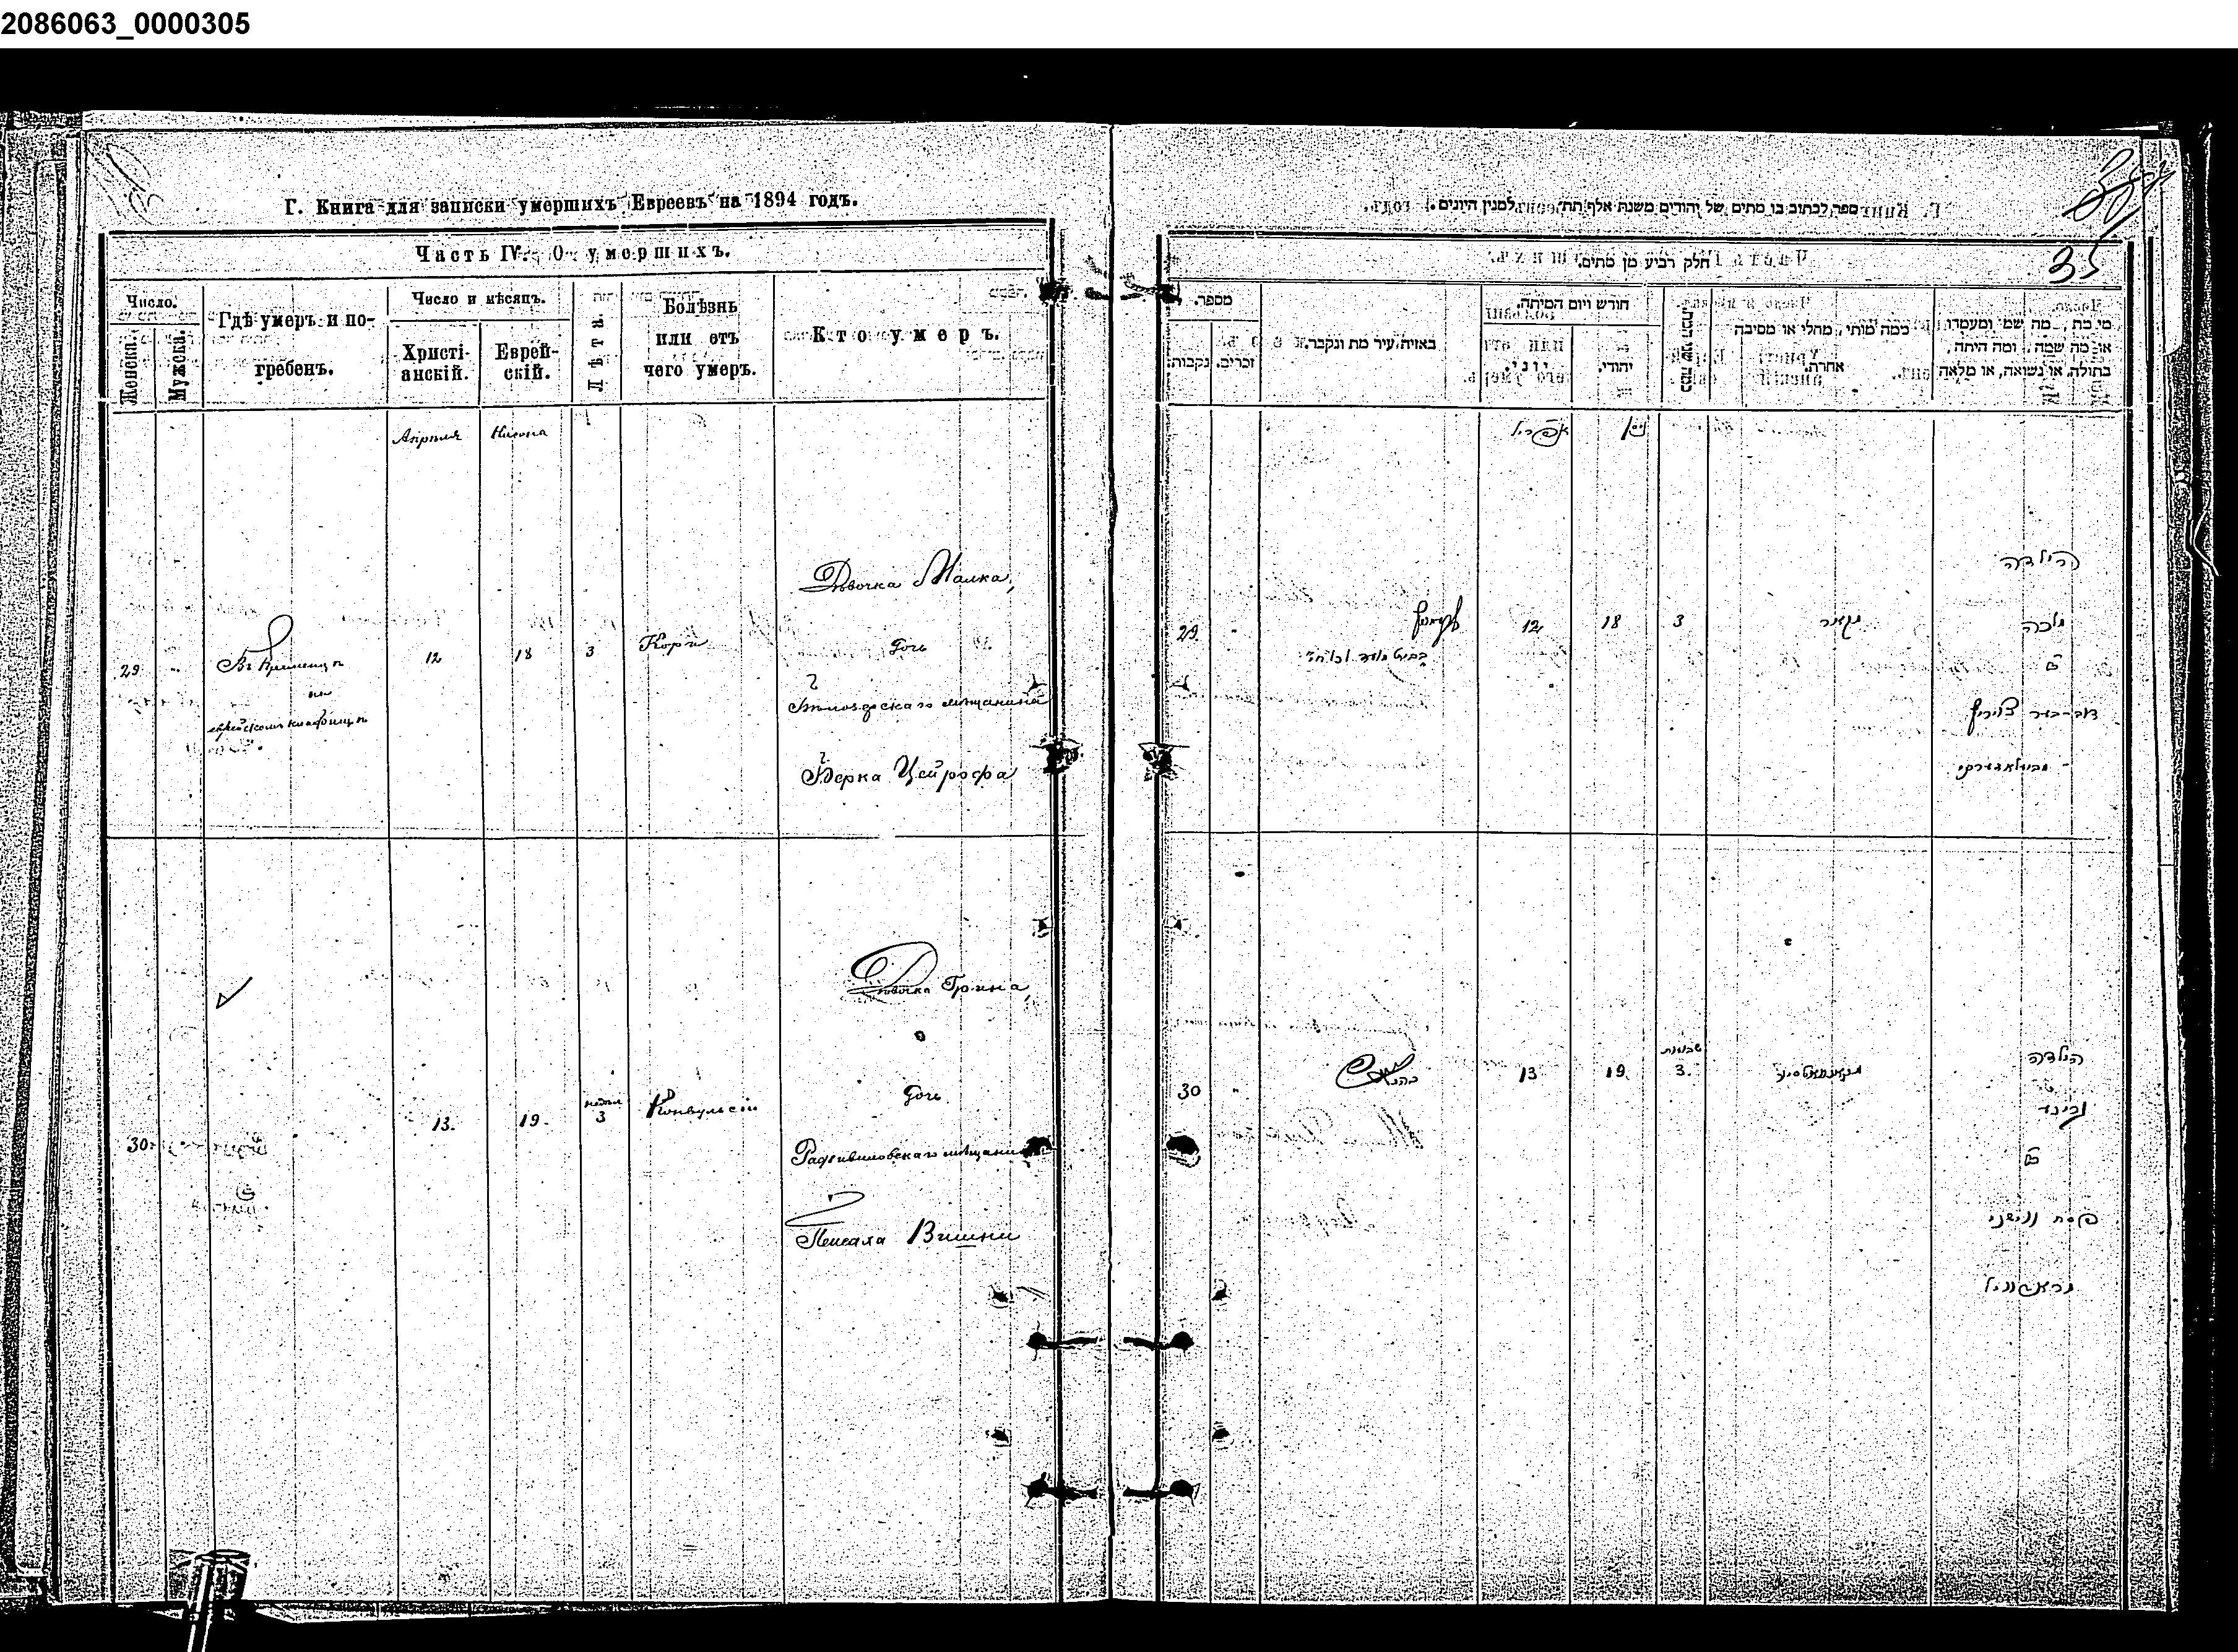 2086063_0000305
Г. Книга для записки умершихъ Евреевъ на 1894 годъ.
Часть IV. О умершихъ.
Число.
Женска.
Мужска.
Гдѣ умеръ и по-
гребенъ.
Число и мѣсяцъ.
Христі-
анскій.
Еврей-
скій.
Лѣта.
Болѣзнь
или отъ
чего умеръ.
Кто умеръ.
Апрѣля
Нисона
29
Въ Кременцѣ
на
еврейскомъ кладбищѣ
12
18
3
Кори
Дѣвочка Малка,
дочь
мѣщанина
Берка Цейрофа
30
13.
19.
недѣл
3
Конвульсіи
Дѣвочка
дочь
Радзивиловскаго мѣщанина
Пейсаха Вишни
ספר לכתוב בו מתים של יהודים משנת אלף תת לסנין היונים.
35
חלק רביע מן מתים.
מספר.
נקבות.
זכרים.
באיזה עיר מת ונקבר.
חודש ויום המיתה.
יוני.
יהודי.
כמה שני חייו.
כמה מותי, מחלי או מסיבה
אחרת.
מי מת, מה שמו ומעמדו
או מה שמה, ומה היתה,
בתולה, או נשואה, או מלאה
אפריל
ניסן
29
12
18
3
הילדה
מלכה
בת
30
13
19
שבועות
3.
הילדה
בת
פסח ווישני